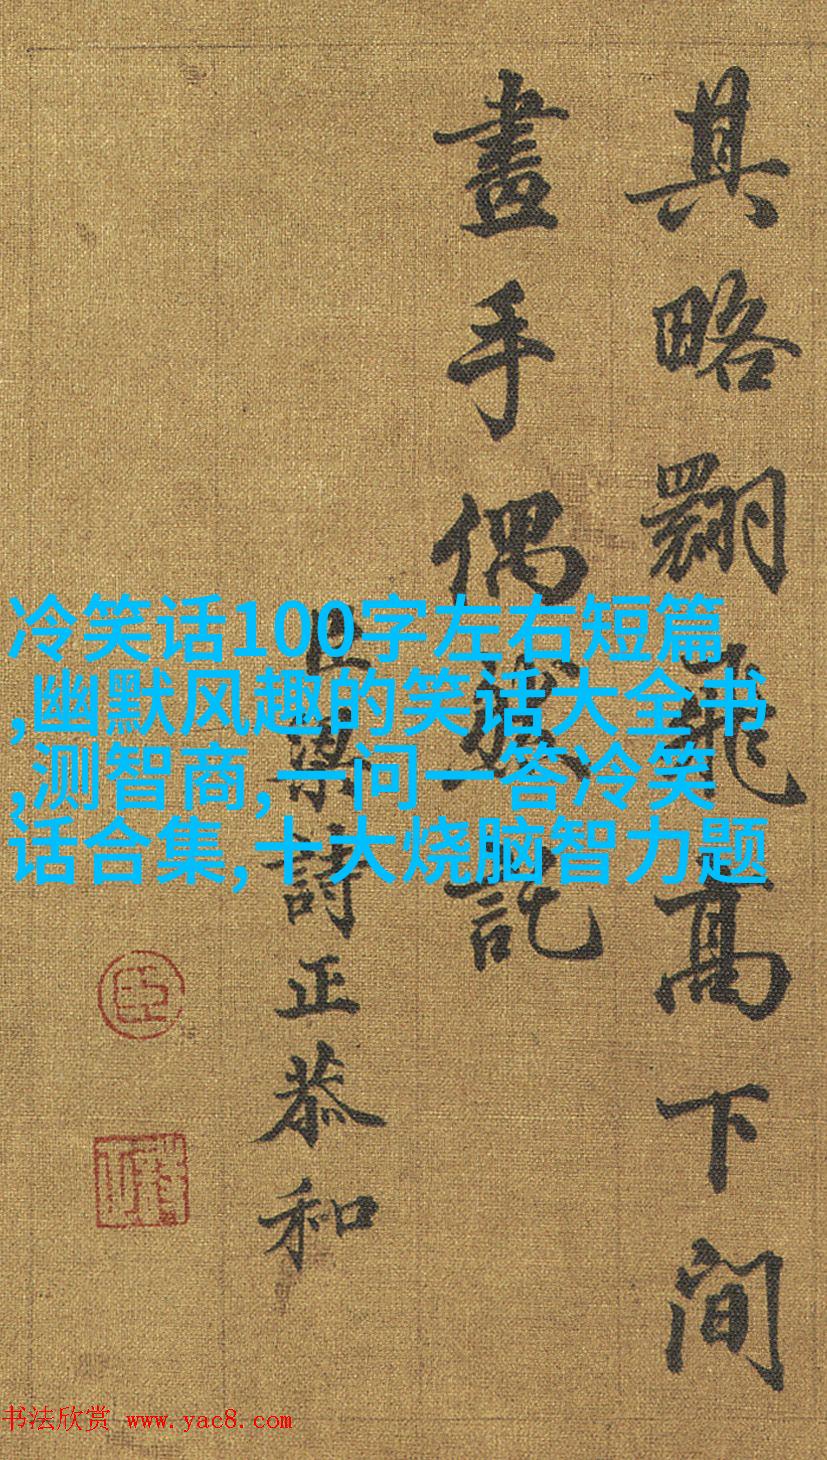 其略翾飛高下間
畫手偶然託
臣梁詩正恭和
臣
冷笑话100字左右短篇
,幽默风趣的笑话大全书
,测智商,一问一答冷笑
话合集,十大烧脑智力题
书法欣赏 www.yac8.com